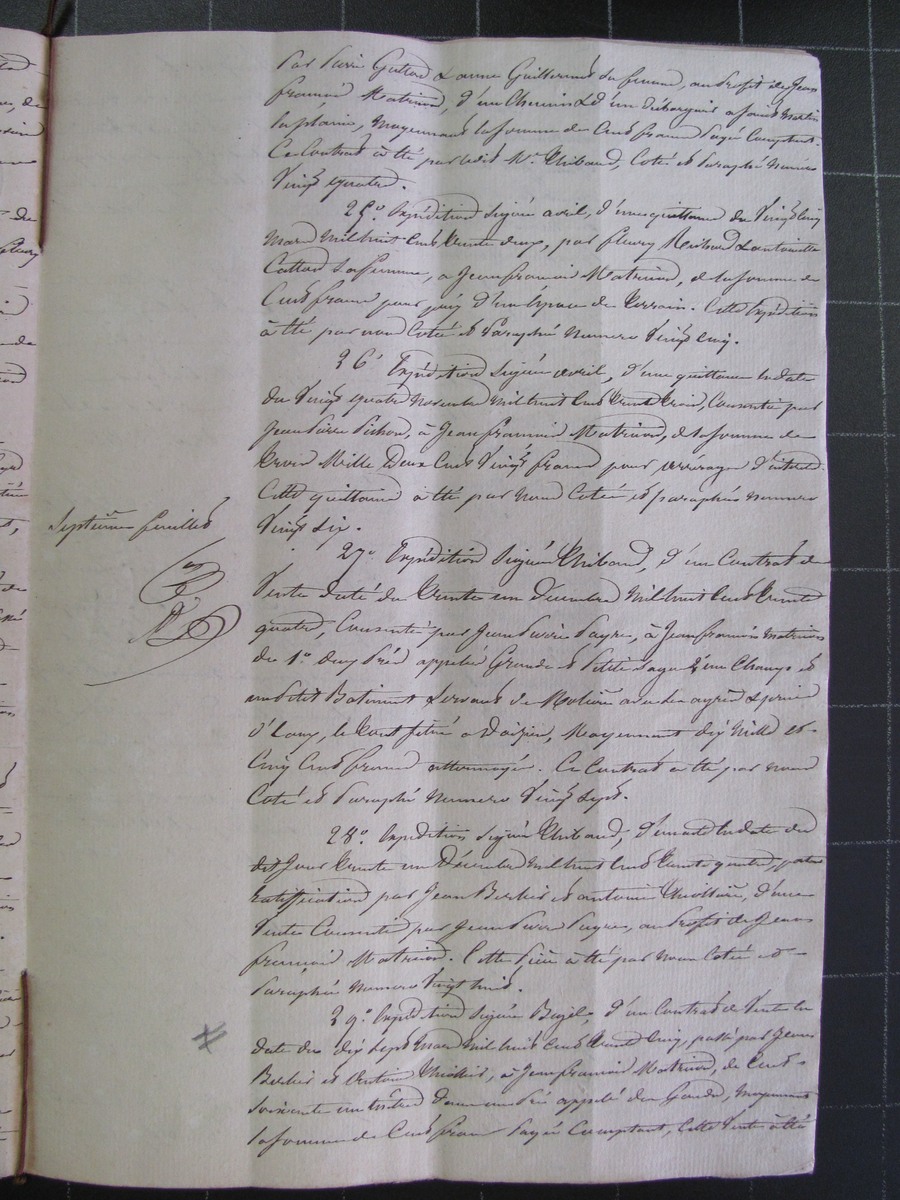 Par Pierre Gattard & anne Guillermin sa femme, au Profit de Jean
françois Matricon, d'un Chemin & d'un
la plaine, moyennant la somme de Cent francs Payée Comptant.
Ce Contrat à été par dit Me Thibaud, Coté et Paraphé Numéro
Vingt quatre.
25°. Expédition Signée avril, d'une quittance du Vingt Cinq
Mars Mil huit Cent trente deux, par fleury Reibaud & antoinette
Cottard sa femme, à Jean françois Matricon, de la somme de
Cent francs pour prix d'un Espace de terrain. Cette Expédition
à été par nous Cotée et Paraphée Numero Vingt Cinq.
26° Expédition Signée avril, d'une quittance En date
du Vingt quatre novembre Mil huit Cent trente trois, Consentie par
Jean Pierre Pichon, à Jean françois Matricon, de la somme de
trois Mille Deux Cent Vingt francs pour arrérages d'intérêt.
Cette quittance à été par nous Cotée et paraphée numero
Vingt Six.
Septième feuillet
27° Expédition Signée Thibaud, d'un Contrat de
Vente daté du trente un Décembre Mil huit Cent trente
quatre, Consentie par Jean Pierre Payre, à Jean françois Matricon
de 1° deux Prés appelés Grande et Petite Saga & un Champ et
un Petit Batiment Servant de
d'Eau, le tout situé a Moyennant dix Mille et
Cinq Cent francs. Ce Contrat a été par nous
Coté et Paraphé Numero Vingt Sept.
28°. Expédition Signée Thibaud, d'un acte En date du
dit Jour trente un Décembre Mil huit Cent trente quatre,
ratification par Jean Berlier et antoine d'une
Vente Consentie par Jean Pierre Payre, au Profit de Jean
françois Matricon. Cette Pièce a été par nous Cotée et
Paraphée Numero Vingt huit.
29°. Expédition Signée d'un Contrat de Vente En
date du dix Sept Mars Mil huit Cent trente Cinq, passé par Jean
Berlier et antoine à Jean françois Matricon, de Cent
Soixante un mètres dans un Pré appelé du Moyennant
la somme de Cent francs Payée Comptant, Cette Vente à été